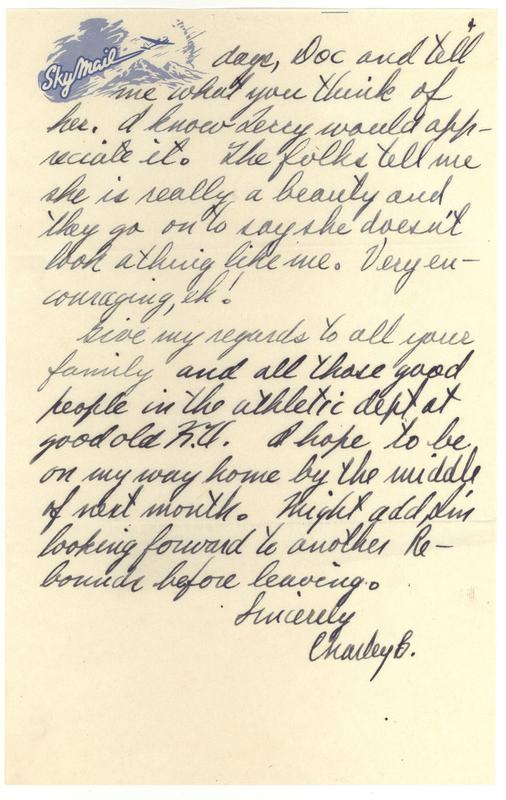 4
Sky Mail
days, Doc and tell
me what you think of
her. I know Terry would app-
reciate it. The folks tell me
she is really a beauty and
they go on to say she doesn't
look a thing like me. Very en-
couraging, eh!
Give my regards to all your
family and all those good
people in the athletic dept at
good old K.U. I hope to be
on my way home by the middle
of next month. Might add I'm
looking forward to another Re-
bounds before leaving.
Sincerely
Charley B.